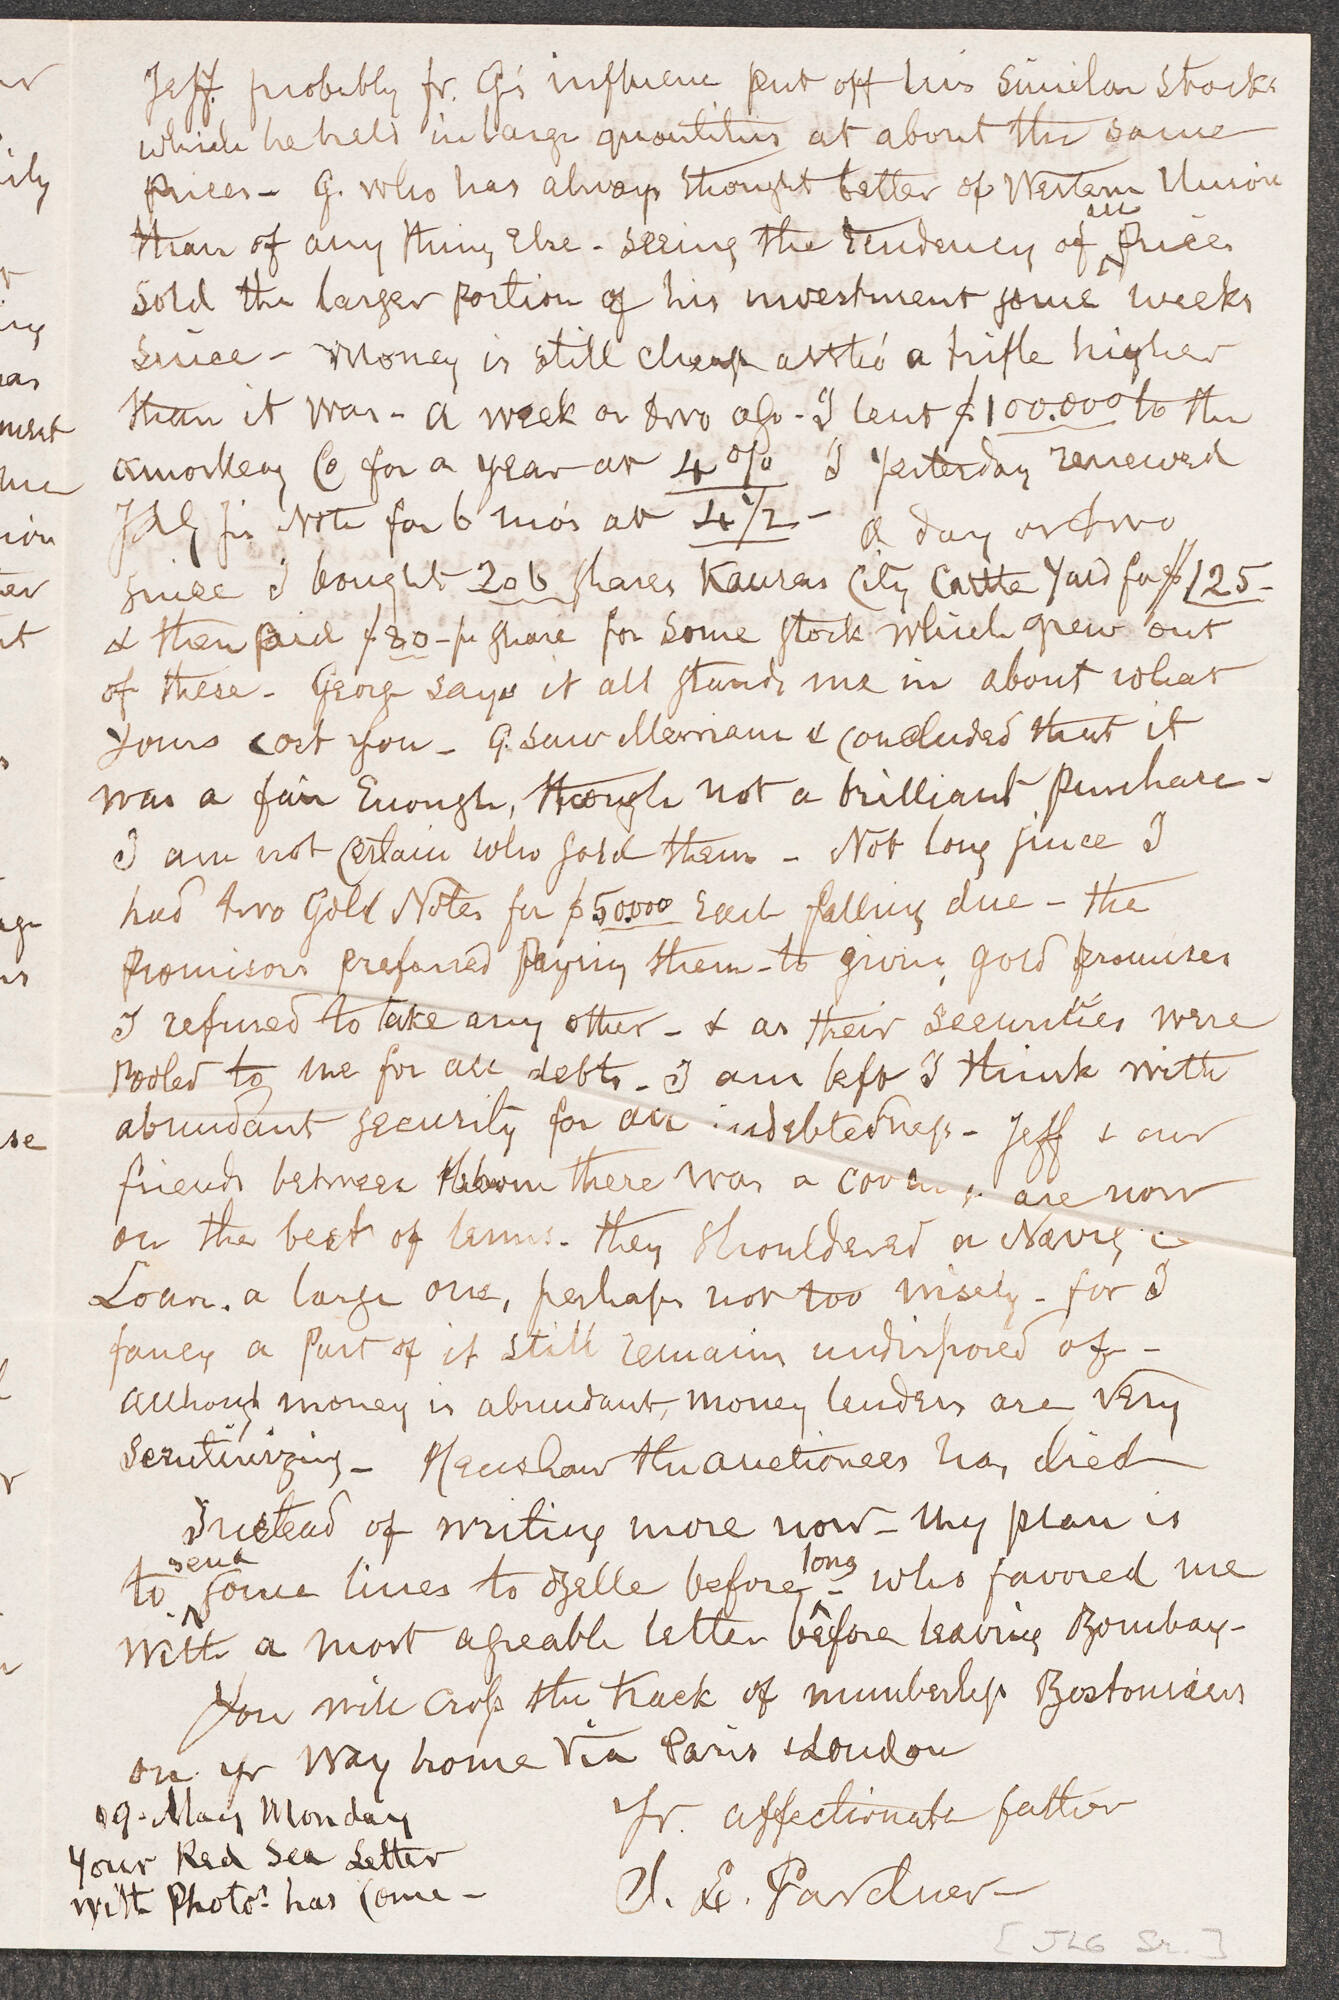 Jeff. probably fr. G's influence put off his similar stocks
which he held in large quantities at about the same
prices - G. who has always thought better of Western Union
than of any thing Else - seeing the tendency of all prices
sold the larger portion of his investment some weeks
since - Money is still cheap altho' a trifle higher
than it was - a week or two ago - I lent $100.000 to the
Amoskeag Co for a year at 4% I yesterday renewed
Note for 6 mos at 4 1/2 - a day or two
since I bought 206 shares Kansas City Cattle Yard for $125 -
& then paid $80 - pr share for some stock which grew out
of these - George says it all stands me in about what
yours cost you - G. saw Merriam & concluded that it
was a fair Enough, though not a brilliant purchase -
I am not certain who sold them - Not long since I
had two Gold Notes for $50.000 Each falling due - the
Promisors preferred paying them - to giving gold promises
I refused to take any other - & as their securities were
to me for all debts - I am left I think with
abundant security for all indebtedness - Jeff & our
friends between whom there was a are now
on the best of terms - they shouldered a
Loan. a large one, perhaps not too wisely - for I
fancy a part of it still remains undisposed of -
although money is abundant, money lenders are very
scrutinizing - Henshaw the auctioneer has died
Instead of writing more now - my plan is
to send some lines to Belle before long - who favored me
with a most agreable letter before leaving Bombay -
You will cross the track of numberless Bostonians
on yr way home via Paris & London
Yr. affectionate father
J. L. Gardner -
19 - May Monday
Your Red Sea Letter
with Photos has come -
[JLG Sr.]